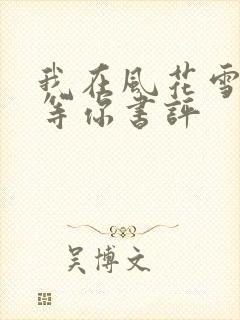 我在風花雪
等你書評
吴博文